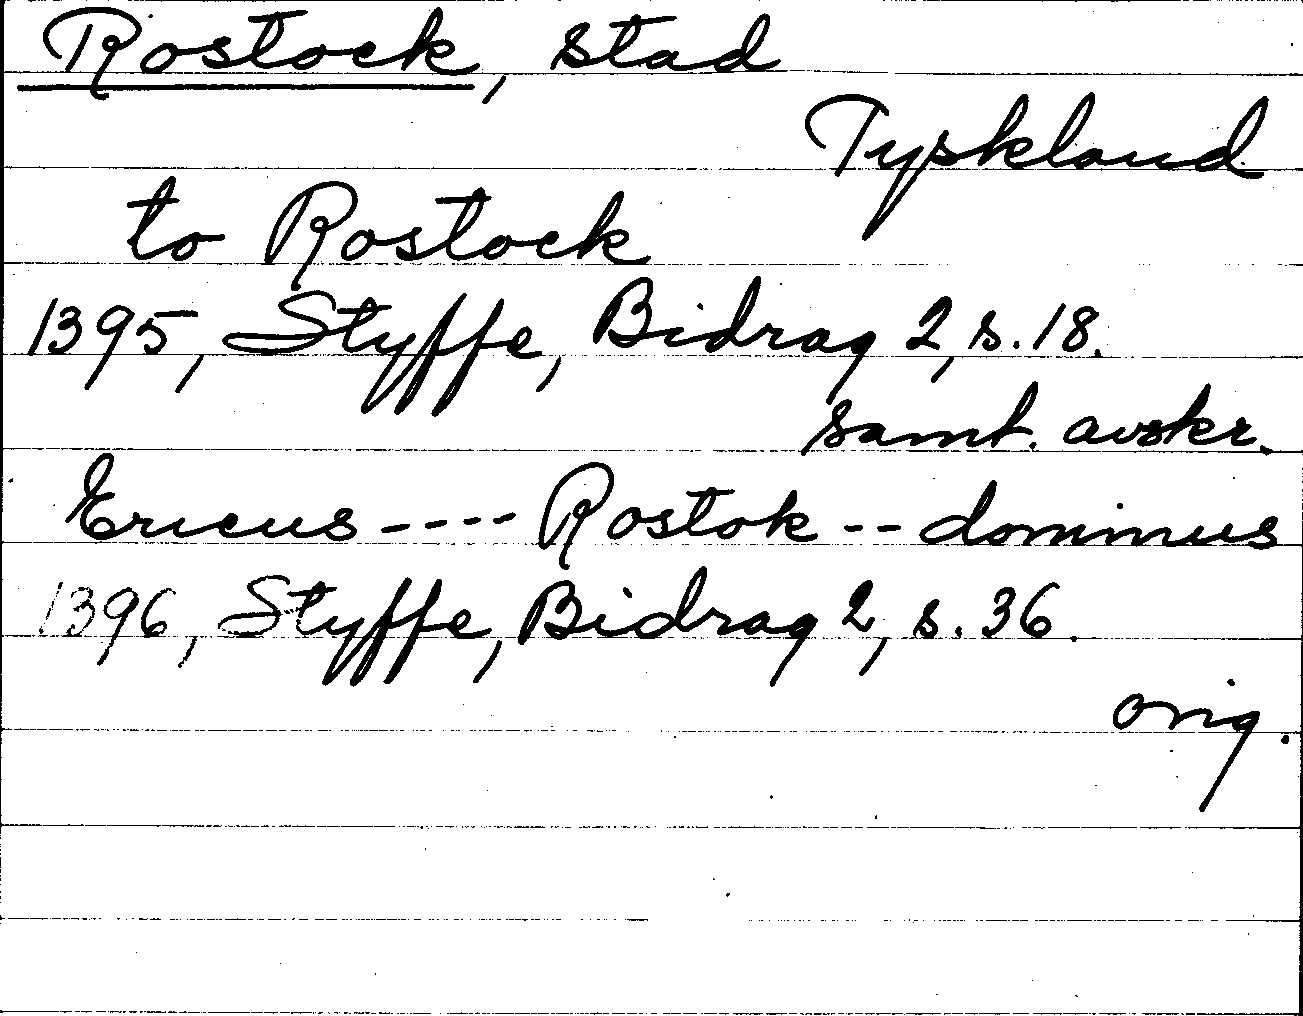 Rostock, stad
Tyskland
to Rostock
1395, Styffe, Bidrag 2, s. 18.
samt. avskr.
Ericus ---- Rostok -- dominus
1396, Styffe, Bidrag 2, s. 36.
orig.